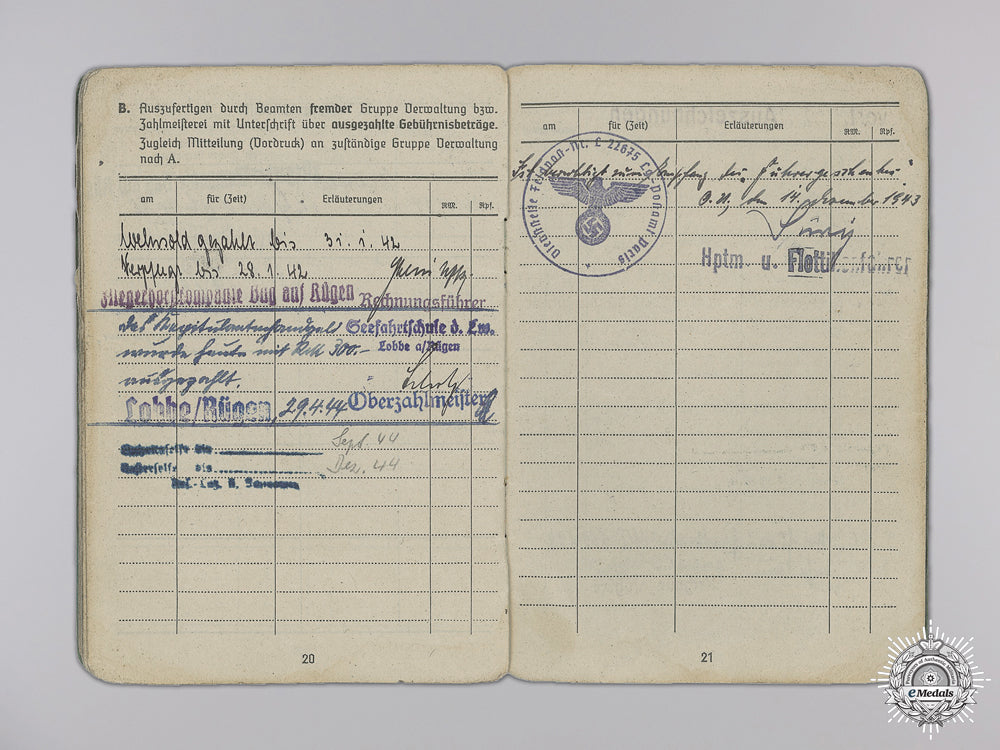 B. Auszufertigen durch Beamten fremder Gruppe Verwaltung bzw.
Zahlmeisterei mit Unterschrift über ausgezahlte Gebührnisbeträge.
Zugleich Mitteilung (Vordruck) an zuständige Gruppe Verwaltung
nach A.
am für (Zeit) Erläuterungen RM. Rpf.
Wehrsold gezahlt bis 31. 1. 42
Verpflegt bis 28. 1. 42
Fliegerhorstkompanie Bug auf Rügen Rechnungsführer
Das Kapitulantenhandgeld Seefahrtschule d. Lw.
wurde heute mit RM 300.- Lobbe a/Rügen
ausgezahlt.
Lobbe/Rügen, 29.4.44 Oberzahlmeister
Sept. 44
Dez. 44
20
am für (Zeit) Erläuterungen RM. Rpf.
Dienststelle Feldpost-Nr. L 22675 Lg. Postamt Paris
Ist berechtigt zum Empfang des Führergeschenkes
O.U., den 14. Dezember 1943
Hptm. u. Flottillenführer
21
Purveyors of Authentic Militaria
eMedals